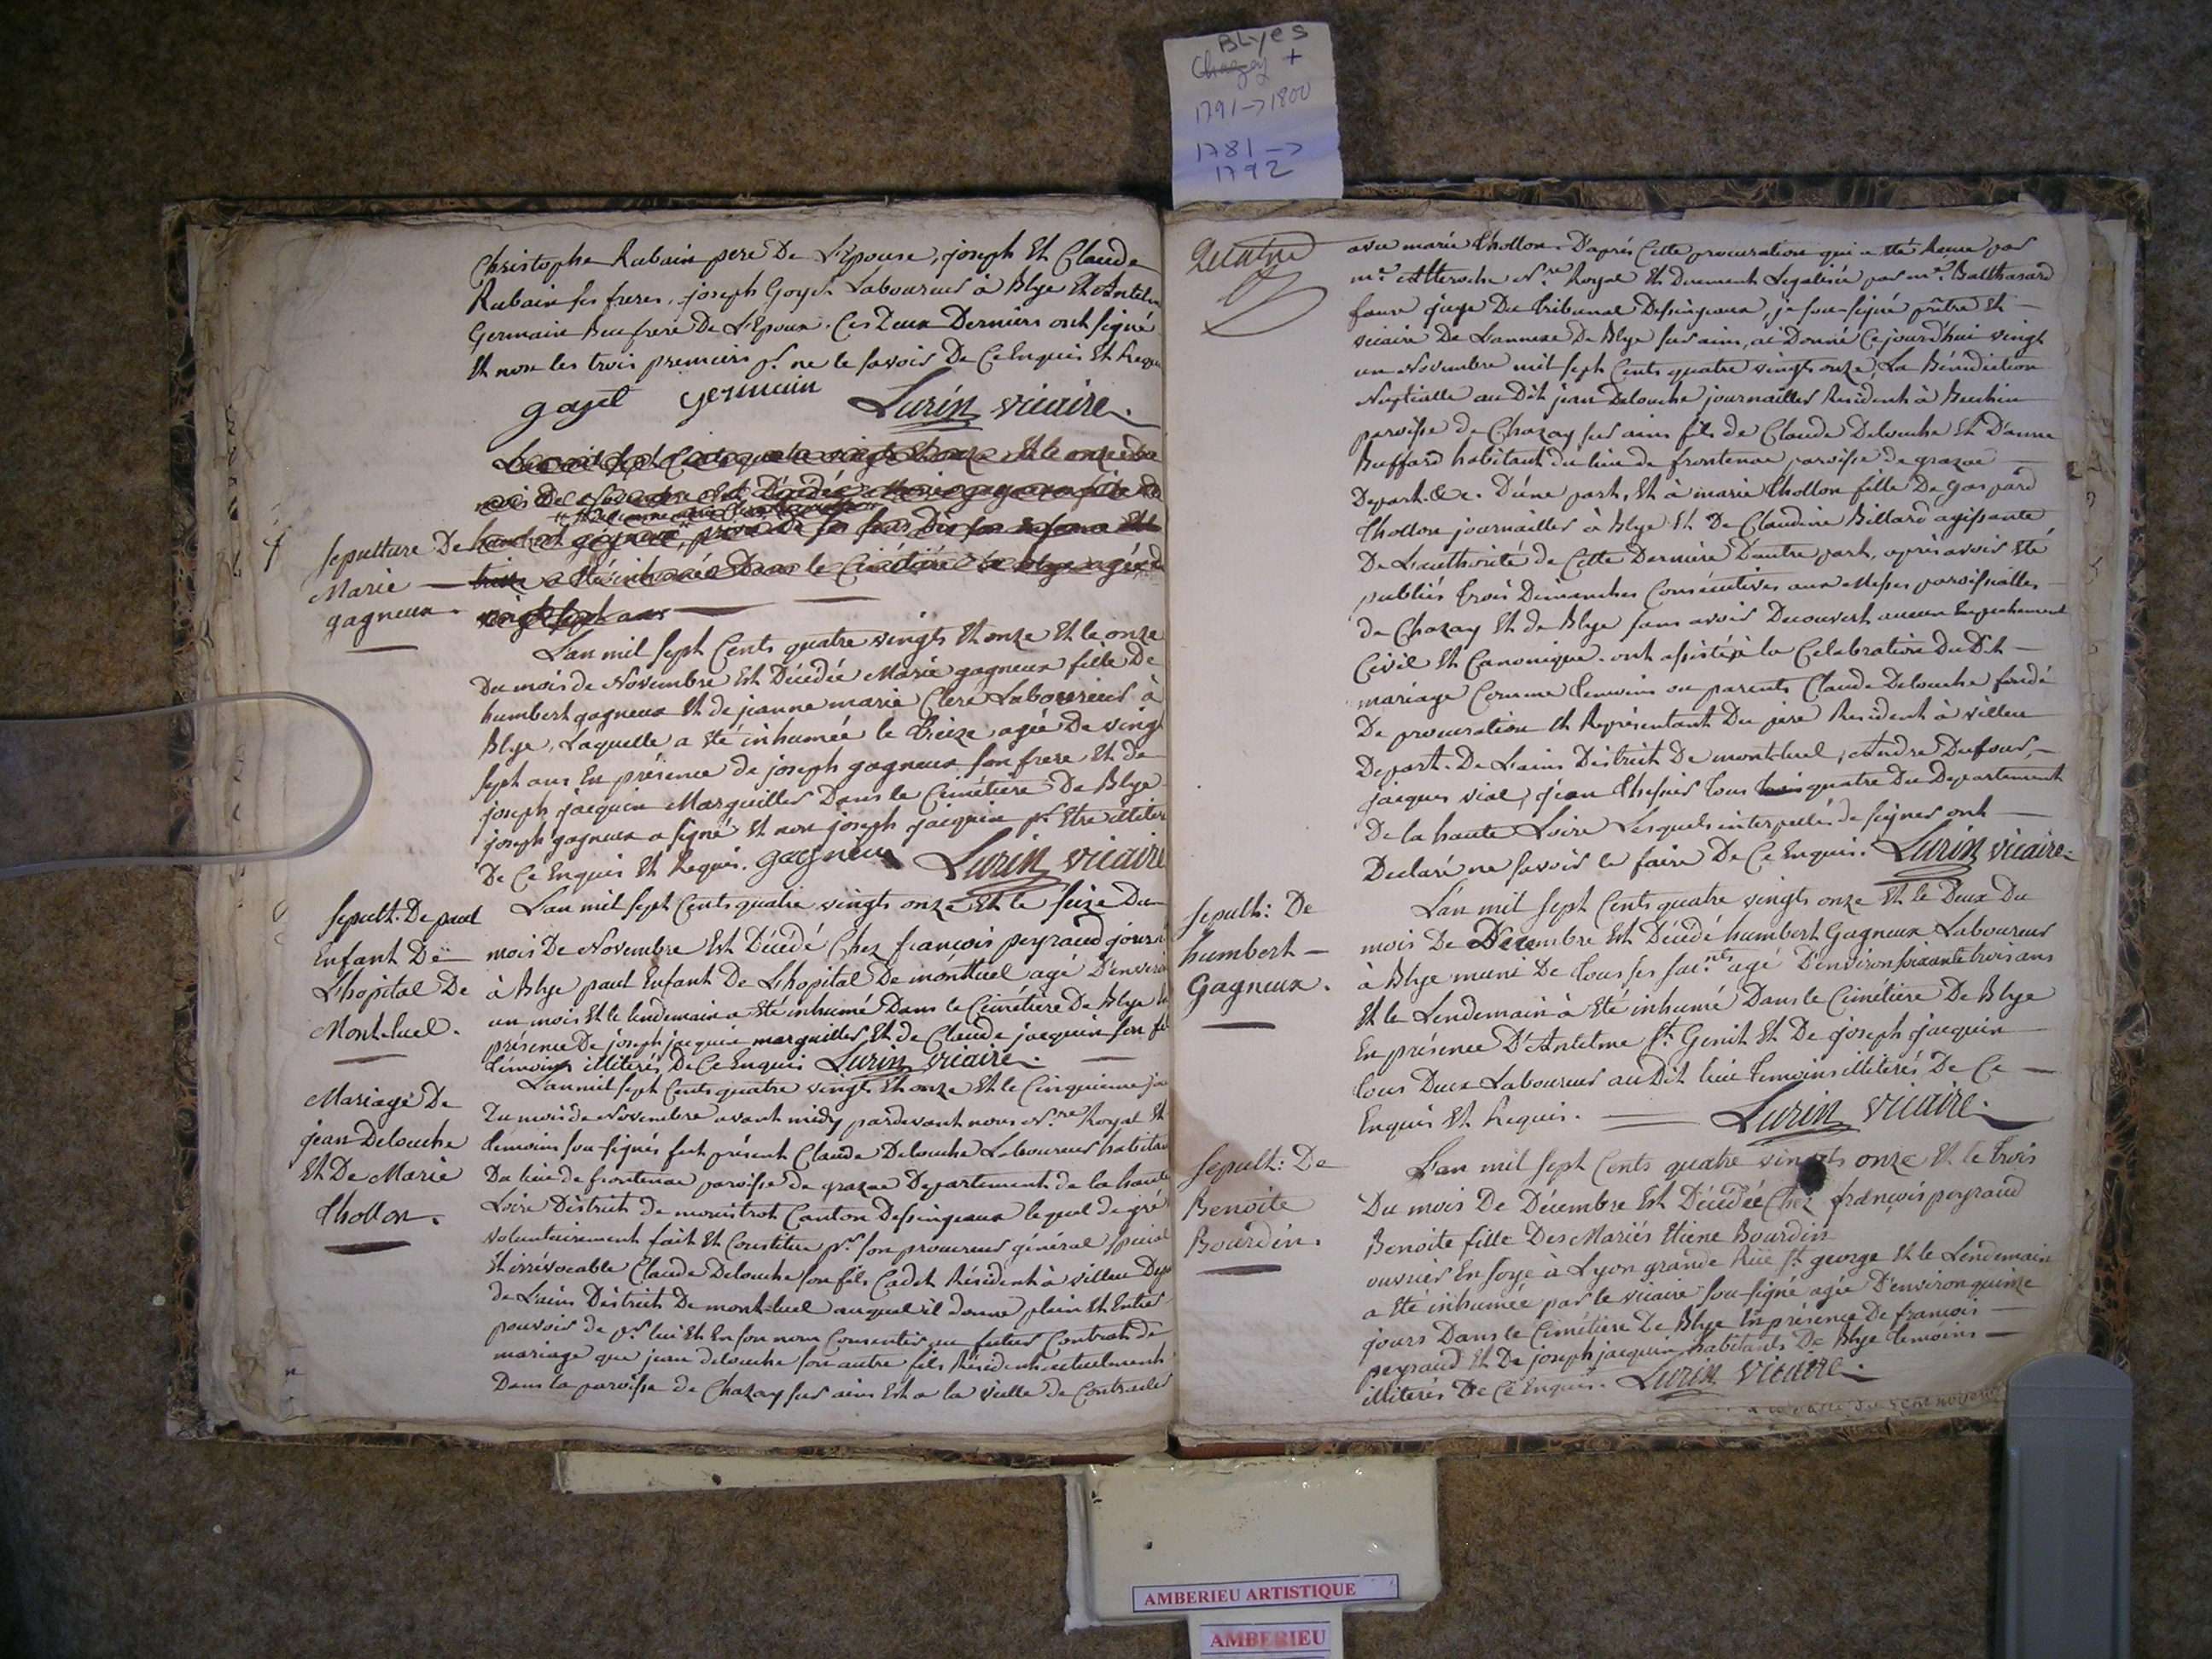 BLyes
Chazey +
1791 -> 1800
1781 ->
1792
Christophe Rubain pere De L'Epouse, joseph Et Claude
Rubain ses freres, joseph Goyet Laboureur à Blye Et Antelm
Germain Beufrere De L'Epoux. Ces Deux Derniers ont signé
Et non les trois premiers pr. ne le savoir De Ce Enquis Et Requ
goyet germain Lurin vicaire.
L'an mil sept Cents quatre vingts Et onze Et le onze du
mois De Novembre est Décédée Marie gagneux fille de
humbert gagneux,
a été inhumée Dans le Cimétière de blye agée de
vingt sept ans
sepulture De
Marie —
gagneux.
L'an mil sept Cents quatre vingts Et onze Et le onze
Du mois de Novembre Est Décédée Marie gagneux fille De
humbert gagneux Et de jeanne marie Clerc Laboureurs à
Blye, Laquelle a été inhumée le treize agée De vingt
sept ans En présence de joseph gagneux son frere Et de
joseph jacquin Marguiller Dans le Cimétiere De Blye
joseph gagneux a signé Et non joseph jacquin pr. Etre illiter
De Ce Enquis Et Requis. gagneux Lurin vicaire
Sepult. De paul
Enfant De
L'hopital De
Mont-luel.
L'an mil sept Cents quatre vingts onze Et le seize Du
mois De Novembre Est Décédé Chez françois peyraud journ
à Blye paul Enfant De L'hopital De montluel agé D'environ
un mois Et le lendemain a été inhumé Dans le Cimétiere De Blye
présence De joseph jacquin marguiller Et de Claude jacquin son fi
témoins illiterés De Ce Enquis Lurin vicaire.
Mariage De
jean Delouche
Et De Marie
Thollon.
L'an mil sept Cents quatre vingts Et onze Et le Cinquieme jo
Du mois de Novembre avant midy pardevant nous Nre. Royal Et
temoins sou-signés fut présent Claude Delouche Laboureur habitan
Du lieu de frontenac paroisse de grazac Departement de la haute
Loire District de monistrot Canton Dessingeaux lequel de gré
volontairement fait Et Constitue pr. son procureur général special
Et irrévocable Claude Delouche son fils Cadet Résident à villeu Dep
de Lains District De mont-luel auquel il donne plain Et Entier
pouvoir de pr. lui Et En son nom Consentir au futur Contrat de
mariage que jean delouche son autre fils Résident actuelment
Dans la paroisse de Chazay sur ains Est a la veille de Contracter
avec marie thollon. D'aprés Cette procuration qui a été Reçue par
mr. Alteroche Nre. Royal Et Duement Legalisée par mr. Balthasard
faure juge Du tribunal Dessingeaux, je sou-signé prêtre Et —
vicaire De L'annexe De Blye sur ains, ai Donné Ce jourd'hui vingt
un Novembre mil sept Cents quatre vingts onze, La Bénédiction
Nuptialle au Dit jean Delouche journailler Résident à
paroisse de Chazay sur ains fils de Claude Delouche Et D'anne
Buffard habitant du lieu de frontenac paroisse de grazac —
Depart. &c. D'une part, Et à marie thollon fille De gaspard
thollon journailler à Blye Et De Claudine Billard agissante
De L'authorité de Cette Derniere D'autre part, après avoir été
publiés trois Dimanches Consécutives aux Messes paroissialles
de Chazay Et de Blye sans avoir Decouvert aucun Empechement
Civil Et Canonique. ont assisté à la Celebration Du Dit —
mariage Comme temoins ou parents Claude Delouche fondé
De procuration Et Représentant Du pere Resident à villeu
Depart. De Lains District De mont-luel, Andre Dufour, —
jacques vial, jean tous trois quatre Du Departement
De la haute Loire Lesquels interpellés de signer ont —
Declaré ne savoir le faire De Ce Enquis. Lurin vicaire.
Sepult: De
humbert —
Gagneux.
L'an mil sept Cents quatre vingts onze Et le Deux Du
mois De Decembre Est Décédé humbert Gagneux Laboureur
à Blye muni De tous ses sacnts. agé D'environ soixante trois ans
Et le Lendemain à été inhumé Dans le Cimétiere De Blye
En présence D'Antelme St. Genit Et De joseph jacquin
tous Deux Laboureurs au Dit lieu temoins illiterés De Ce —
Enquis Et Requis. — Lurin vicaire.
Sepult: De
Benoite
Bourdin.
L'an mil sept Cents quatre vingts onze Et le trois
Du mois De Décembre Est Décédée Chez françois peyraud
Benoite fille Des Mariés Etiene Bourdin
ouvrier En soye à Lyon grande Rue St. george Et le Lendemain
a été inhumée par le vicaire sou-signé agée D'environ quinze
jours Dans le Cimétiere De Blye En présence De françois —
peyraud Et De joseph jacquin habitants De Blye temoins —
illiterés De Ce Enquis. Lurin vicaire.
AMBERIEU ARTISTIQUE
AMBERIEU